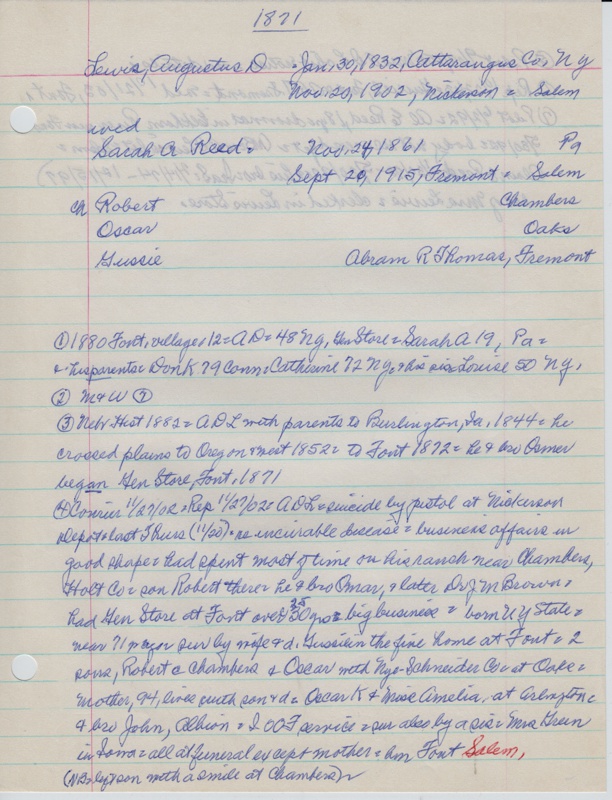 1871
Lewis, Augustus D = Jan, 30, 1832, Cattaraugus Co, NY
Nov. 20, 1902, Nickerson = Salem
wed
Sarah A Reed = Nov, 24, 1861 Pa
Sept 20, 1915, Fremont = Salem
ch Robert Chambers
Oscar Oaks
Gussie Abram R Thomas, Fremont
① 1880 Font, village, 12 = A D = 48 Ny, Gen Store = Sarah A 19, Pa =
& his parents = Don K 79 Conn = Catherine 72 Ny, = his sis Louise 50 Ny,
② M & W
③ Nebr Hist 1882 = A D L with parents to Burlington, Ia, 1844 = he
crossed plains to Oregon & west 1852 = to Font 1872 = he & bro Osmer
began Gen Store, Font, 1871
④ Courier 11/27/02 = Rep 11/27/02 = A D L = suicide by pistol at Nickerson
Depot = last Thurs (11/20) = as incurable disease = business affairs in
good shape = had spent most of time on his ranch near Chambers,
Holt Co = son Robert there = he & bro Omar, & later Dr J M Brown =
had Gen Store at Font over 25 yrs = big business = born NY State =
near 71 sur by wife & d. Gussie in the fine home at Font = 2
sons, Robert Chambers & Oscar with Nye-Schneider Co = at Oaks =
mother, 94, lives with son & d = Oscar K & Miss Amelia, at Arlington =
& bro John, Albion = I.O.O.F service = sur also by a sis = Mrs Green
in Iowa = all at funeral except mother = bur Font Salem,
son with a smile at Chambers)